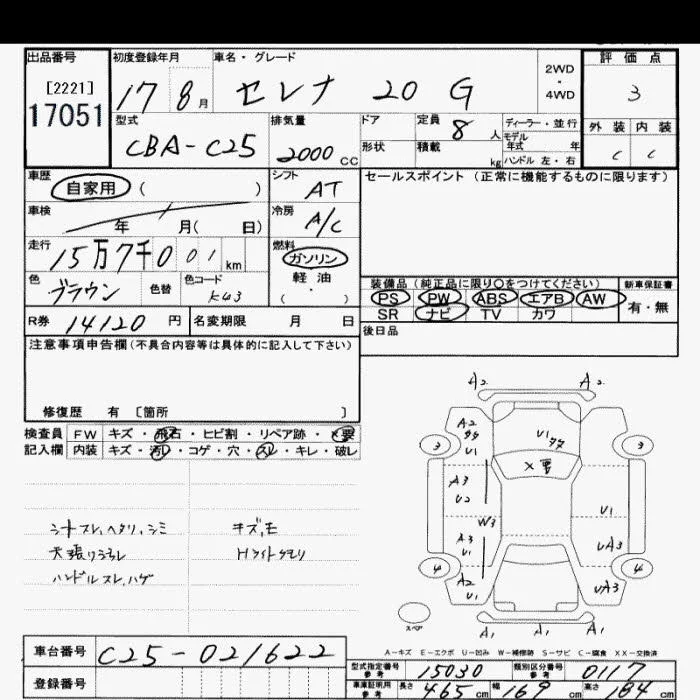 出品番号 初度登録年月 車名・グレード 評価点
[2221] 17051 17 8月 セレナ 20 G 2WD・4WD 3
型式 CBA-C25 排気量 2000CC ドア 形状 定員 8人 積載 kg ディーラー・並行 モデル年式 年 ハンドル 左・右 外装 内装 C C
車歴 自家用 ( ) シフト AT セールスポイント (正常に機能するものに限ります)
車検 年 月( 日) 冷房 A/C
走行 15万7千001km 燃料 ガソリン 軽油 ( ・ )
色 ブラウン 色替 色コード K43 装備品 (純正品に限り○をつけてください) 新車保証書
PS PW ABS エアB AW 有・無
SR ナビ TV カワ
R券 14120円 名変期限 月 日 後日品
注意事項申告欄(不具合内容等は具体的に記入して下さい)
修復歴 有 [箇所 ]
検査員 FW キズ・飛石・ヒビ割・リペア跡・×要
記入欄 内装 キズ・汚レ・コゲ・穴・スレ・キレ・破レ
シートスレ、ヘタリ、シミ キズ、モ
天張リヨゴレ Hライトクモリ
ハンドルスレ、ハゲ
A2 A2
A2 タタ U1 U1 タタ
3 3
×要
A3 U2 U1
W3
A3 U1 UA3
4 4
A2 U1 UA3
スペア A1 A1 A1
A-キズ E-エクボ U-凹み W-補修跡 S-サビ C-腐食 XX-交換済
車台番号 C25-021622
登録番号
型式指定番号 参考 15030 類別区分番号 参考 0117
車庫証明用 参考 長さ 465cm 幅 169cm 高さ 184cm